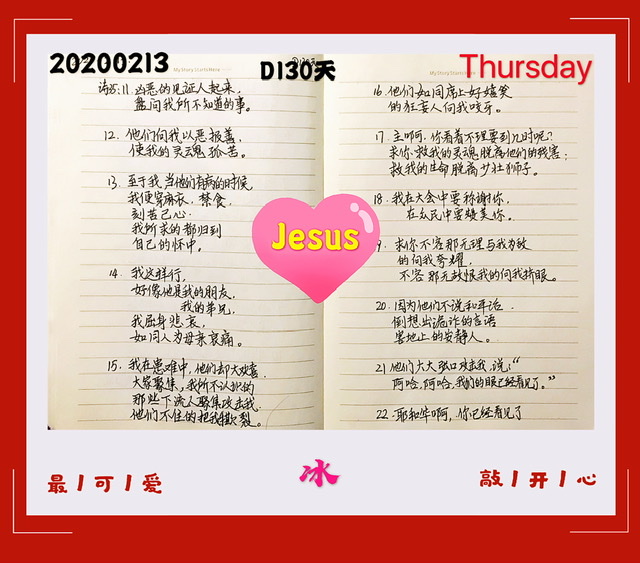 20200213
D130天
Thursday
My Story Starts Here
诗35:11. 凶恶的见证人起来,
盘问我所不知道的事。
12. 他们向我以恶报善,
使我的灵魂孤苦。
13. 至于我,当他们有病的时候,
我便穿麻衣,禁食,
刻苦己心.
我所求的都归到
自己的怀中。
14. 我这样行,
好像他是我的朋友,
我的弟兄,
我屈身悲哀,
如同人为母亲哀痛。
15. 我在患难中,他们却大欢喜,
大家聚集,我所不认识的
那些下流人聚集攻击我.
他们不住的把我撕裂。
16. 他们如同席上好嬉笑
的狂妄人向我咬牙。
17. 主啊,你看着不理要到几时呢?
求你救我的灵魂脱离他们的残害;
救我的生命脱离少壮狮子。
18. 我在大会中要称谢你,
在众民中要赞美你。
9. 求你不容那无理与我为敌
的向我夸耀.
不容那无故恨我的向我挤眼。
20. 因为他们不说和平话.
倒想出诡诈的言语
害地上的安静人。
21 他们大大张口攻击我,说:“
阿哈,阿哈,我们的眼已经看见了。”
22. 耶和华啊,你已经看见了
Jesus
最丨可丨爱
冰
敲丨开丨心